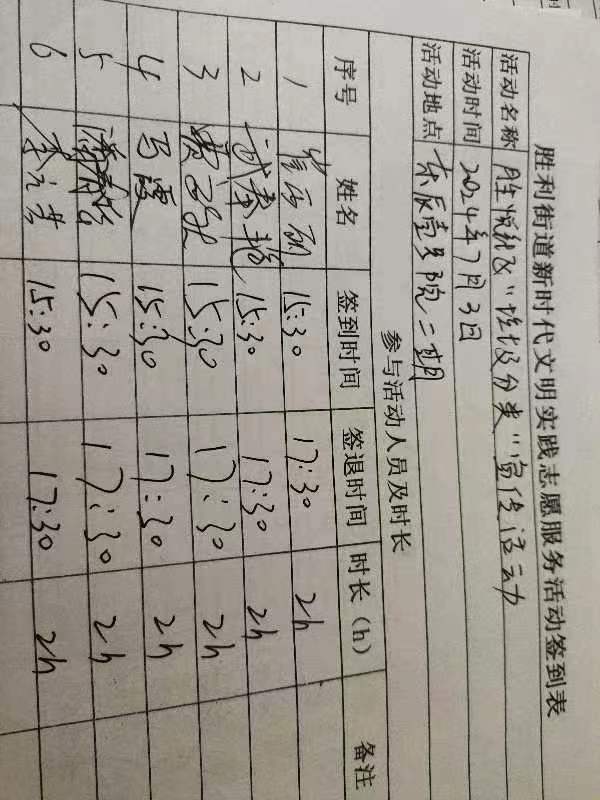 胜利街道新时代文明实践志愿服务活动签到表
活动名称 胜悦社区"垃圾分类"宣传活动
活动时间 2024年7月3日
活动地点 东辰壹号院二期
参与活动人员及时长
序号 姓名 签到时间 签退时间 时长（h） 备注
1 15:30 17:30 2h
2 15:30 17:30 2h
3 15:30 17:30 2h
4 马霞 15:30 17:30 2h
5 15:30 17:30 2h
6 15:30 17:30 2h